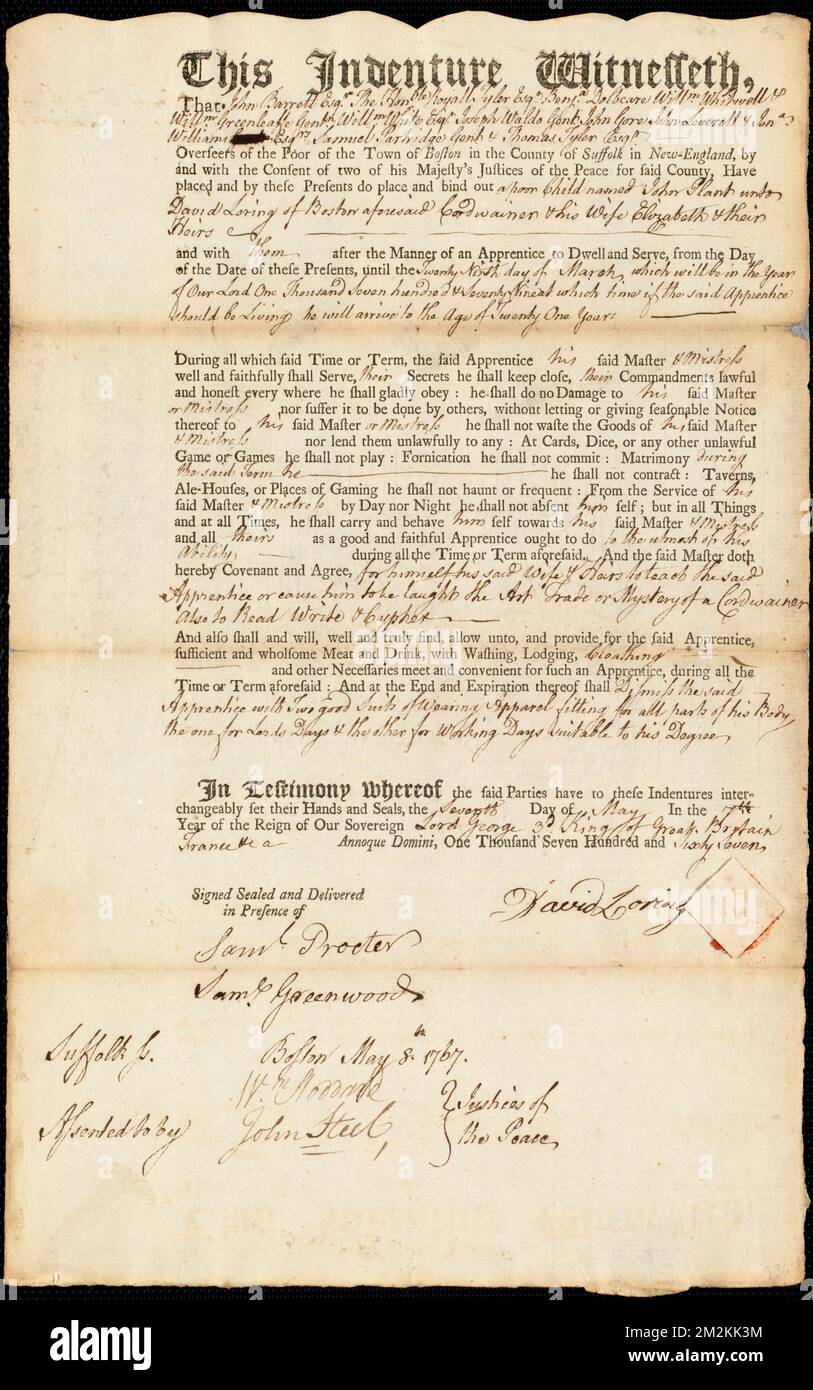 This Indenture Witnesseth,
That John Barrett Esqr. The Honble Royall Tyler Esqr. Benja. Dolbeare Willm. Whitwell &
Willm. Greenleafe Gentn. Willm. White Esqr. Joseph Waldo Gent. John Gore John Leverett & Jona.
Williams Esqrs. Samuel Partridge Gent & Thomas Tyler Esqr.
Overſeers of the Poor of the Town of Boſton in the County of Suffolk in New-England, by
and with the Conſent of two of his Majeſty's Juſtices of the Peace for ſaid County, Have
placed and by theſe Preſents do place and bind out a poor Child named John Plant unto
David Loring of Boston aforesaid Cordwainer & his Wife Elizabeth & their
Heirs
and with them after the Manner of an Apprentice to Dwell and Serve, from the Day
of the Date of theſe Preſents, until the Twenty day of March which will be in the Year
of Our Lord One Thousand Seven hundred & Seventy at which time if the said Apprentice
should be Living he will arrive to the Age of Twenty One Years
During all which ſaid Time or Term, the ſaid Apprentice his ſaid Maſter & Mistress
well and faithfully ſhall Serve, their Secrets he ſhall keep cloſe, their Commandments lawful
and honeſt every where he ſhall gladly obey : he ſhall do no Damage to his ſaid Maſter
or Mistress nor ſuffer it to be done by others, without letting or giving ſeaſonable Notice
thereof to his ſaid Maſter or Mistress he ſhall not waſte the Goods of his ſaid Maſter
& Mistress nor lend them unlawfully to any : At Cards, Dice, or any other unlawful
Game or Games he ſhall not play : Fornication he ſhall not commit : Matrimony during
the said Term he he ſhall not contract : Taverns,
Ale-Houſes, or Places of Gaming he ſhall not haunt or frequent : From the Service of his
ſaid Maſter & Mistress by Day nor Night he ſhall not abſent him ſelf ; but in all Things
and at all Times, he ſhall carry and behave him ſelf towards his ſaid Maſter & Mistress
and all theirs as a good and faithful Apprentice ought to do to the utmost of his
Ability, during all the Time or Term aforeſaid. And the ſaid Maſter doth
hereby Covenant and Agree, for himself his said Wife & Heirs to teach the said
Apprentice or cause him to be taught the Art Trade or Mystery of a Cordwainer
Also to Read Write & Cypher
And alſo ſhall and will, well and truly find, allow unto, and provide for the ſaid Apprentice,
ſufficient and wholſome Meat and Drink, with Waſhing, Lodging, Cloathing
and other Neceſſaries meet and convenient for ſuch an Apprentice, during all the
Time or Term aforeſaid : And at the End and Expiration thereof ſhall Dismiss the said
Apprentice with Two good Suits of Wearing Apparel fitting for all parts of his Body
the one for Lords Days & the other for Working Days suitable to his Degree
In Teſtimony whereof the ſaid Parties have to theſe Indentures inter-
changeably ſet their Hands and Seals, the Seventh Day of May In the 7th
Year of the Reign of Our Sovereign Lord George 3d. King of Great Britain
France &c a Annoque Domini, One Thouſand Seven Hundred and Sixty Seven
Signed Sealed and Delivered
in Preſence of
David Loring
Saml. Procter
Saml. Greenwood
Suffolk Ss. Boston May 8th 1767.
Wm Stoddard
Assented to by John Steel, Justices of
the Peace
alamy
Image ID: 2M2KK3M
www.alamy.com